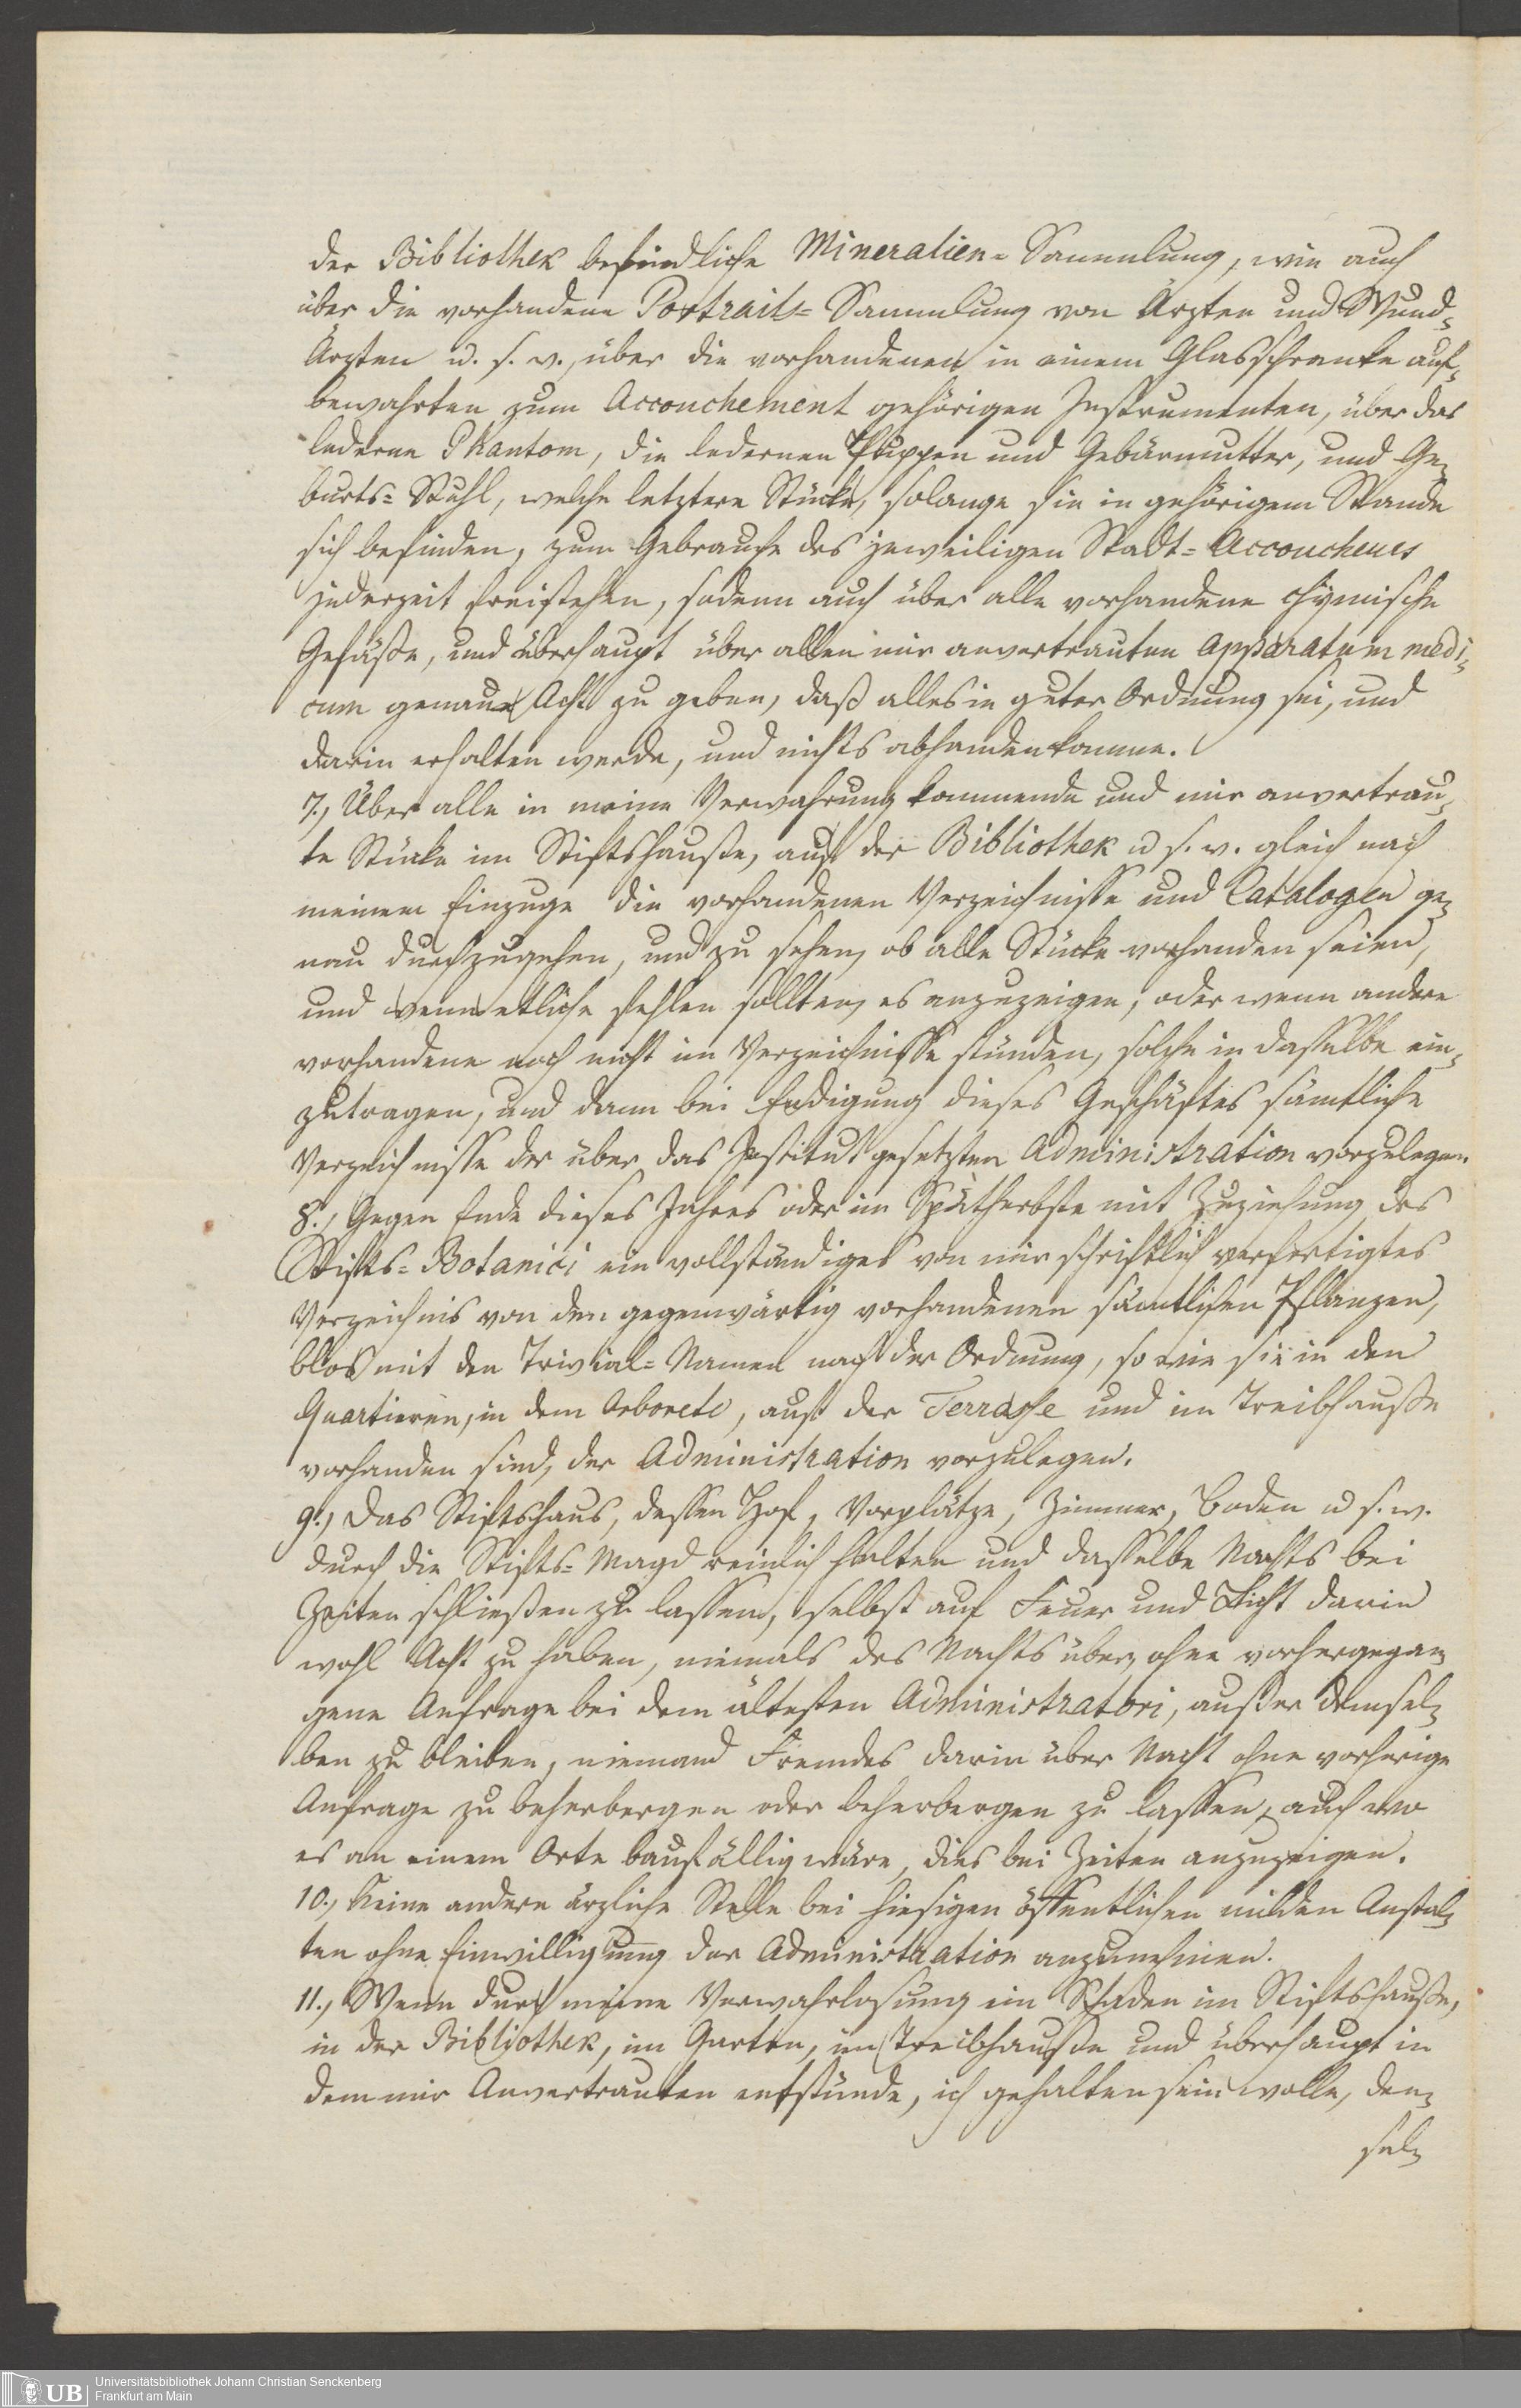 der Bibliothek befindliche Mineralien=Sammlung, wie auch
über die vorhandene Portraits=Sammlung von Ärzten und Wund=
Ärzten u. s. w., über die vorhandenen in einem Glasschranke auf=
bewahrten zum Accouchement gehörigen Instrumenten, über das
lederne Phantom, die ledernen Puppen und Gebärmutter, und Ge=
burts=Stuhl, welche letztere Stücke, solange sie in gehörigem Stande
sich befinden, zum Gebrauche des jeweiligen Stadt=Accoucheurs
jederzeit freistehen, sodann auch über alle vorhandene chymische
Gefäße, und überhaupt über allen mir anvertrauten Apparatum medi=
cum genaue Acht zu geben, daß alles in guter Ordnung sei, und
darin erhalten werde, und nichts abhanden komme.
7., Über alle in meine Verwahrung kommende und mir anvertrau=
te Stücke im Stiftshauße, auf der Bibliothek u s. w. gleich nach
meinem Einzuge die vorhandenen Verzeichnisse und Catalogen ge=
nau durchzugehen, und zu sehen, ob alle Stücke vorhanden seien,
und wenn etliche fehlen sollten, es anzuzeigen, oder wenn andere
vorhandene noch nicht im Verzeichnisse stünden, solche in dasselbe ein=
zutragen, und dann bei Endigung dieses Geschäftes sämtliche
Verzeichnisse der über das Institut gesetzten Administration vorzulegen.
8., Gegen Ende dieses Jahres oder im Spätherbste mit Zuziehung des
Stifts=Botanici ein vollständiges von mir schriftlich verfertigtes
Verzeichnis von den gegenwärtig vorhandenen sämtlichen Pflanzen,
blos mit den Trivial=Namen nach der Ordnung, so wie sie in den
Quartieren, in dem Arboreto, auf der Terrasse und im Treibhauße
vorhanden sind, der Administration vorzulegen.
9., Das Stiftshaus, dessen Hof, Vorplätze, Zimmer, Boden u s. w.
durch die Stifts=Magd reinlich halten und dasselbe Nachts bei
Zeiten schließen zu lassen, selbst auf Feuer und Licht darin
wohl Acht zu haben, niemals des Nachts über, ohne vorhergegan=
gene Anfrage bei dem ältesten Administratori, außer demsel=
ben zu bleiben, niemand Fremdes darin über Nacht ohne vorherige
Anfrage zu beherbergen oder beherbergen zu lassen, auch wo
es an einem Orte baufällig wäre, dies bei Zeiten anzuzeigen.
10., Keine andere ärzliche Stelle bei hiesigen öffentlichen milden Anstal=
ten ohne Einwilligung der Administration anzunehmen.
11., Wenn durch meine Verwahrlosung ein Schaden im Stiftshauße,
in der Bibliothek, im Garten, im Treibhauße und überhaupt in
dem mir Anvertrauten entstünde, ich gehalten sein wolle, den=
sel=
UB
Universitätsbibliothek Johann Christian Senckenberg
Frankfurt am Main